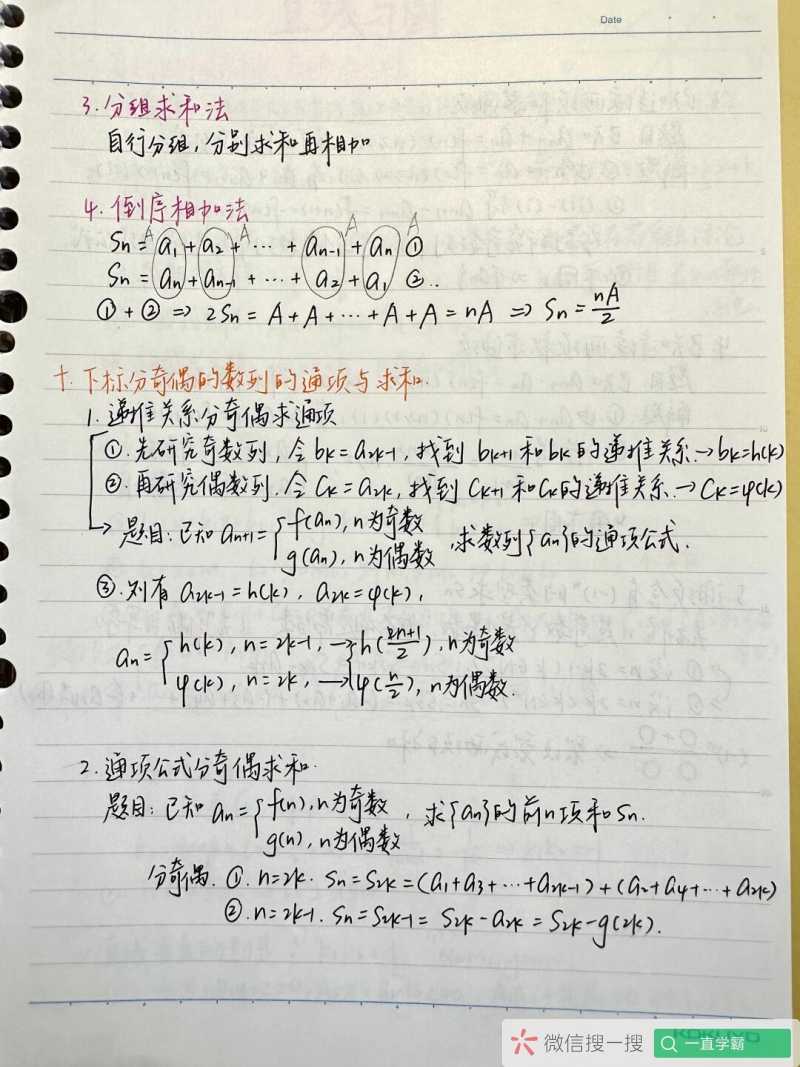 Date
3. 分组求和法
自行分组, 分别求和再相加
4. 倒序相加法
A A A A
Sn = a₁ + a₂ + ··· + aₙ₋₁ + aₙ ①
Sn = aₙ + aₙ₋₁ + ··· + a₂ + a₁ ②..
① + ② ⇒ 2Sn = A + A + ··· + A + A = nA ⇒ Sn = nA/2
十. 下标分奇偶的数列的通项与求和.
1. 递推关系分奇偶求通项
①. 先研究奇数列, 令 bₖ = a₂ₖ₋₁, 找到 bₖ₊₁ 和 bₖ 的递推关系. → bₖ = h(k)
②. 再研究偶数列. 令 Cₖ = a₂ₖ, 找到 Cₖ₊₁ 和 Cₖ 的递推关系. → Cₖ = φ(k)
→ 题目: 已知 aₙ₊₁ = { f(aₙ), n为奇数
g(aₙ), n为偶数 , 求数列{aₙ}的通项公式.
③. 则有 a₂ₖ₋₁ = h(k), a₂ₖ = φ(k),
aₙ = { h(k), n = 2k-1, → { h( n+1/2 ), n为奇数
φ(k), n = 2k, → φ( n/2 ), n为偶数.
2. 通项公式分奇偶求和.
题目: 已知 aₙ = { f(n), n为奇数 , 求{aₙ}的前n项和Sn.
g(n), n为偶数
分奇偶. ①. n=2k. Sn = S₂ₖ = (a₁ + a₃ + ··· + a₂ₖ₋₁) + (a₂ + a₄ + ··· + a₂ₖ)
②. n=2k-1. Sn = S₂ₖ₋₁ = S₂ₖ - a₂ₖ = S₂ₖ - g(2k).
KOKUYO
微信搜一搜
一直学霸